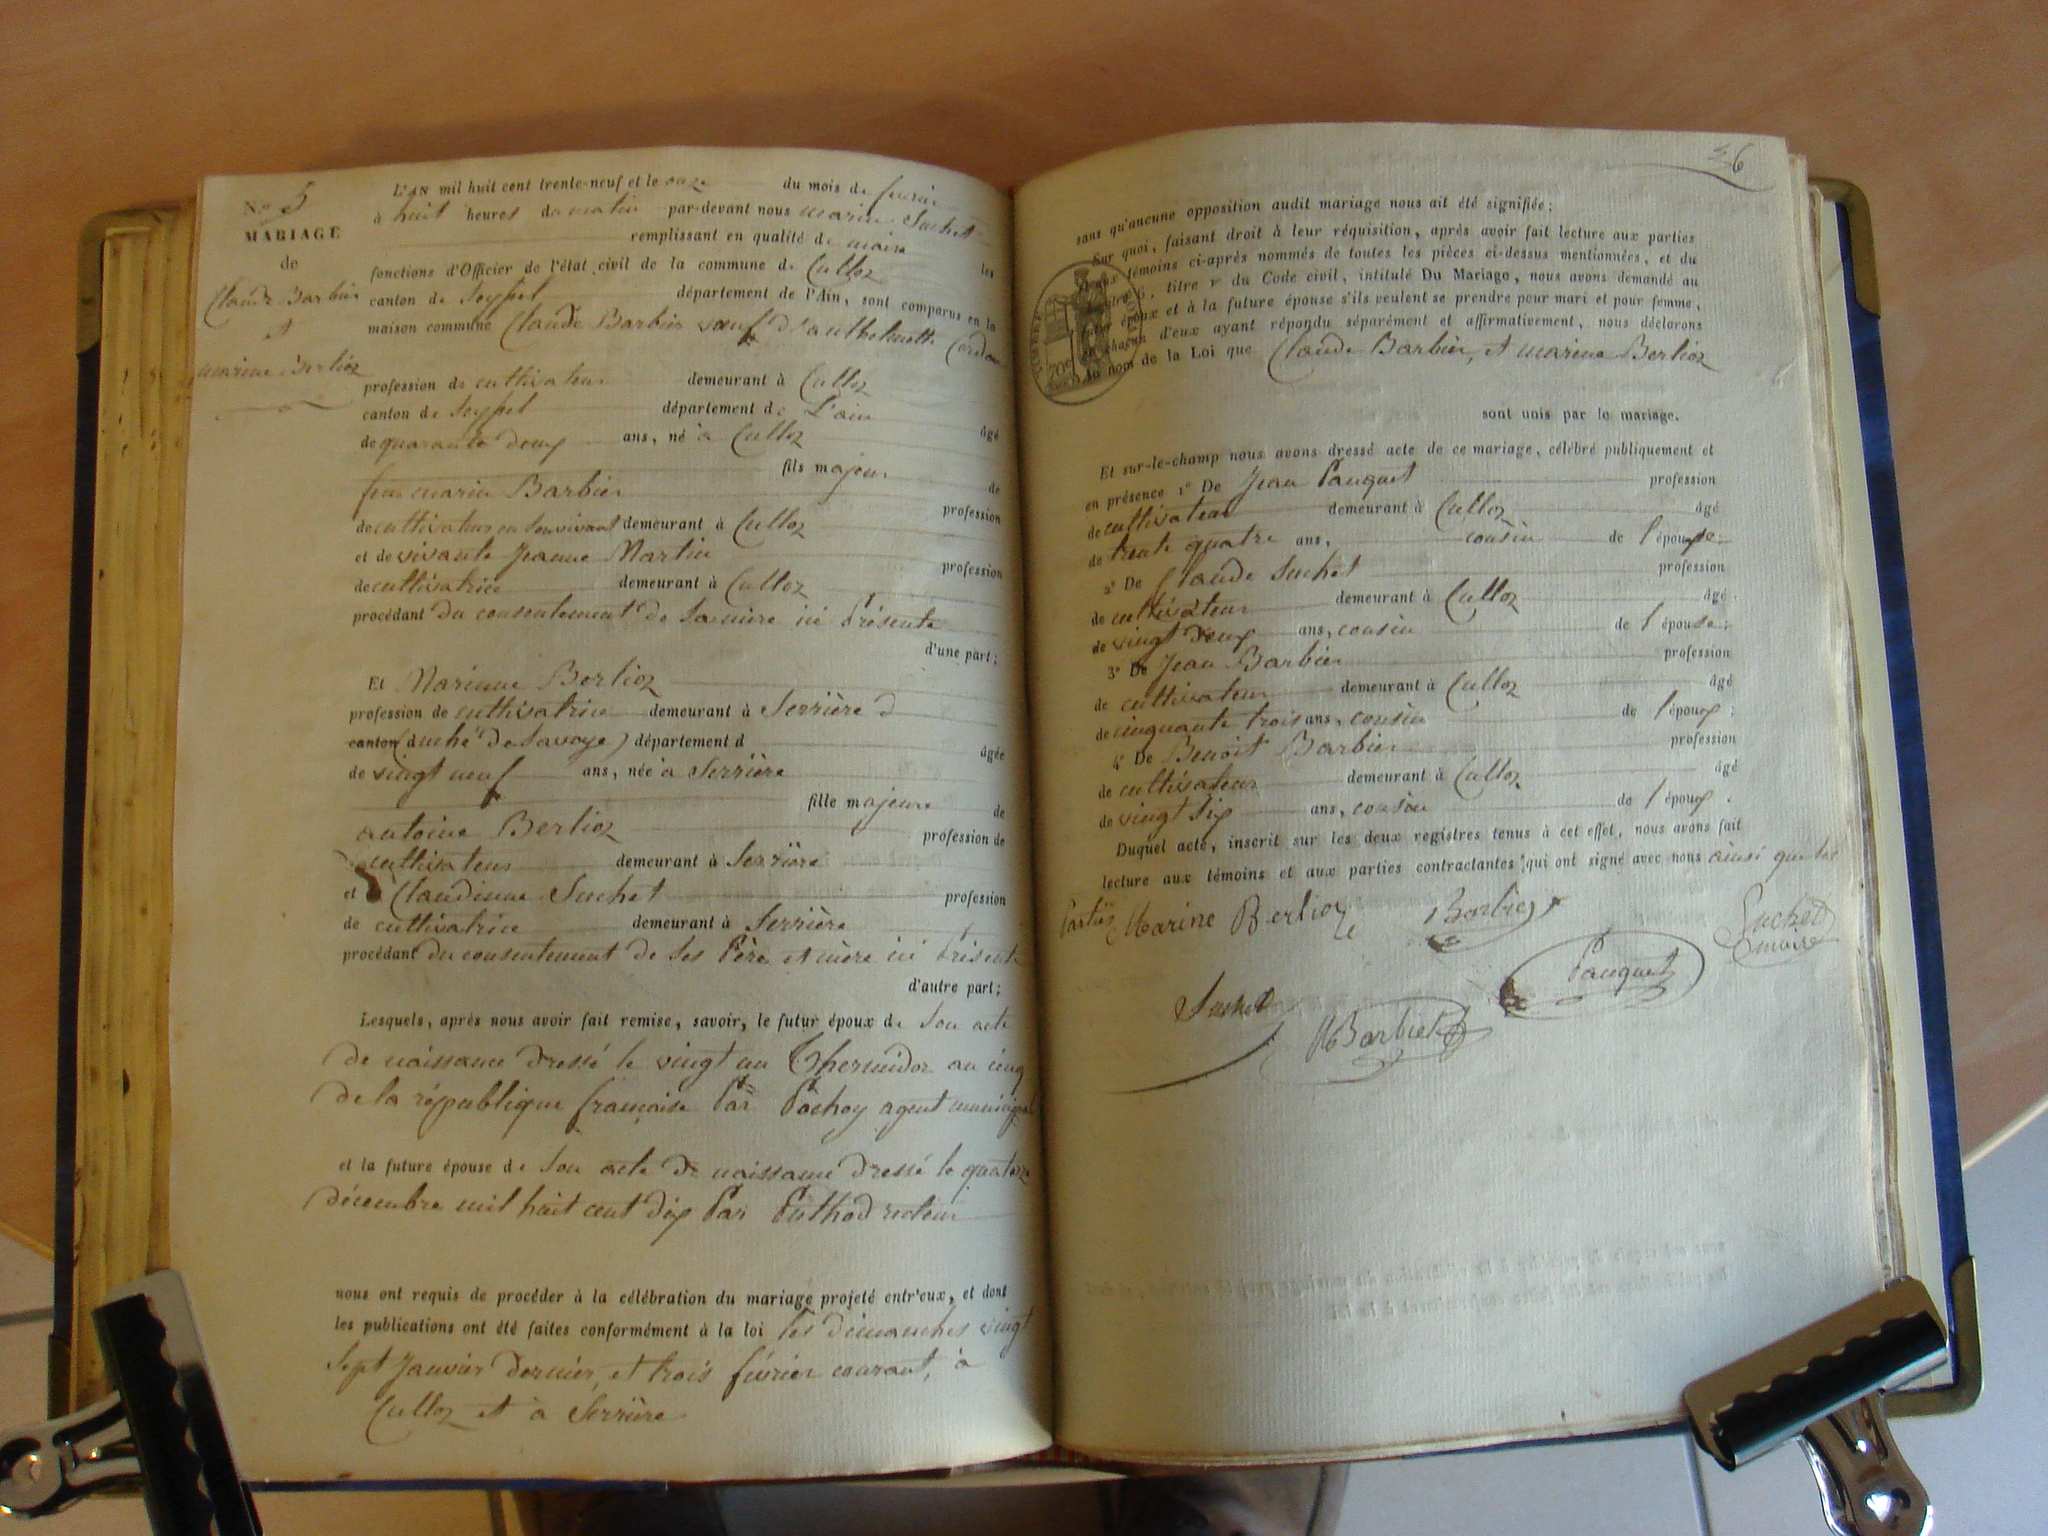 N.o 5
MARIAGE
de
Claude Barbier
et
marine Berlioz
L'AN mil huit cent trente-neuf et le onze du mois de février
à huit heures du matin par-devant nous marin Suchet
remplissant en qualité de maire les
fonctions d'Officier de l'état civil de la commune de Culloz
canton de Seyssel département de l'Ain, sont comparus en la
maison commune Claude Barbier veuf d'anthelmette Cordon
profession de cultivateur demeurant à Culloz
canton de Seyssel département de L'ain âgé
de quarante deux ans, né à Culloz
fils majeur de
feu marin Barbier profession
de cultivateur en son vivant demeurant à Culloz
et de vivante Jeanne Martin profession
de cultivatrice demeurant à Culloz
procédant du consentement de Sa mère ici présente
d'une part;
Et Marinne Berlioz
profession de cultivatrice demeurant à Serrière d
canton (duché de Savoye) département d âgée
de vingt neuf ans, née à Serrière
fille majeure de
antoine Berlioz profession de
cultivateur demeurant à Serrière
et Claudinne Suchet profession
de cultivatrice demeurant à Serrière
procédant du consentement de Ses Père et mère ici présents
d'autre part;
Lesquels, après nous avoir fait remise, savoir, le futur époux de Son acte
de naissance dressé le vingt un Thermidor an cinq
de la république française Par Pochoy agent municipal
et la future épouse de Son acte de naissance dressé le quatorze
décembre mil huit cent dix Par Puthod recteur
nous ont requis de procéder à la célébration du mariage projeté entr'eux, et dont
les publications ont été faites conformément à la loi les dimanches vingt
Sept Janvier dernier, et trois février courant, à
Culloz et à Serrière
6
sans qu'aucune opposition audit mariage nous ait été signifiée;
Sur quoi, faisant droit à leur réquisition, après avoir fait lecture aux parties
témoins ci-après nommés de toutes les pièces ci-dessus mentionnées, et du
6, titre v du Code civil, intitulé Du Mariage, nous avons demandé au
époux et à la future épouse s'ils veulent se prendre pour mari et pour femme,
chacun d'eux ayant répondu séparément et affirmativement, nous déclarons
au nom de la Loi que Claude Barbier, et marine Berlioz
70c
sont unis par le mariage.
Et sur-le-champ nous avons dressé acte de ce mariage, célébré publiquement et
en présence 1° De Jean Pauquet profession
de cultivateur demeurant à Culloz âgé
de trente quatre ans, cousin de l'épouse;
2° De Claude Suchet profession
de cultivateur demeurant à Culloz âgé
de vingt deux ans, cousin de l'épouse;
3° De Jean Barbier profession
de cultivateur demeurant à Culloz âgé
de cinquante trois ans, cousin de l'époux;
4° De Benoit Barbier profession
de cultivateur demeurant à Culloz âgé
de vingt six ans, cousin de l'époux.
Duquel acte, inscrit sur les deux registres tenus à cet effet, nous avons fait
lecture aux témoins et aux parties contractantes qui ont signé avec nous ainsi que les
Parties Marine Berlioz Barbier Suchet
maire
Pauquet
Suchet
Barbier